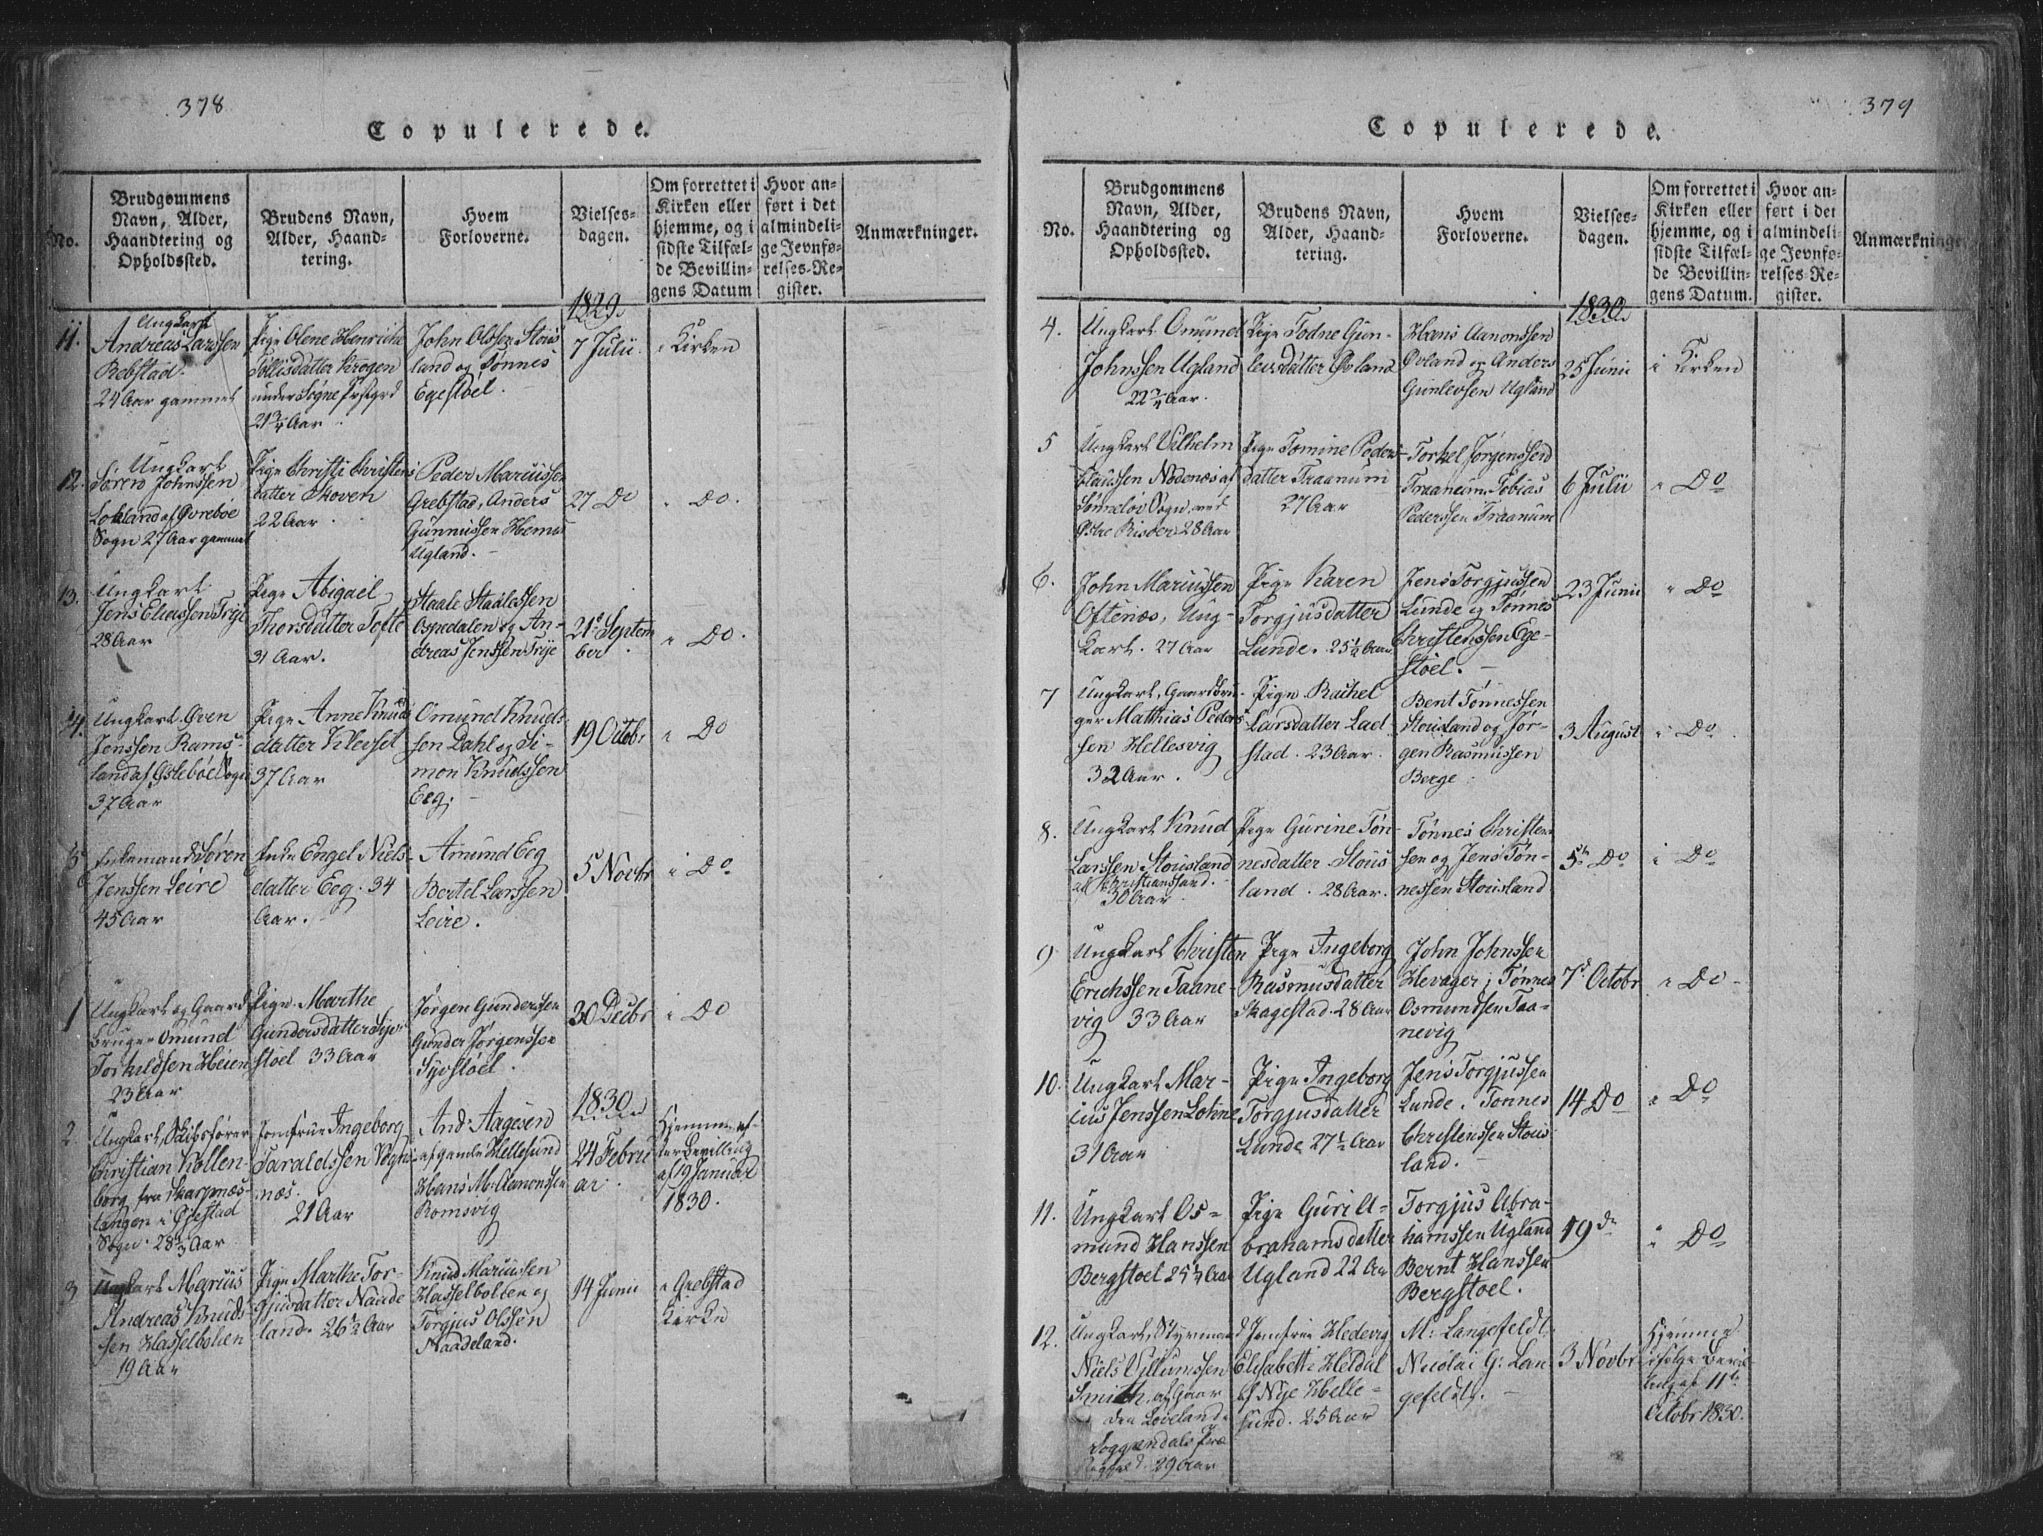 378
Copulerede.
No.
Brudgommens
Navn, Alder,
Haandtering og
Opholdssted.
Brudens Navn,
Alder, Haand-
tering.
Hvem
Forloverne.
Vielses-
dagen.
Om forrettet i
Kirken eller
hjemme, og i
sidste Tilfæl-
de Bevillin-
gens Datum
Hvor an-
ført i det
almindeli-
ge Jevnfø-
relses-Re-
gister.
Anmærkninger.
1829
11.
Ungkarl
Andreas Larssen
Rebstad
24 Aar gammel
Pige Olene Henriche
Tollisdatter Krogen
under Søgne
21 3/4 Aar
John Olssen Stous
land og Tønnes
Egestøel.
7 Julii
i Kirken
12.
Ungkarl
Søren Johnssen
Lohland af Øvrebøe
Sogn 27 Aar gammel
Pige Christi Christens
datter Skoven
22 Aar
Peder Mariussen
Grebstad, Anders
Gunnussen Hemes
Ugland.
27 Do
" Do.
13.
Ungkarl
Jens Eliassen Trye
28 Aar
Pige Abigael
Thorsdatter Tofte
31 Aar.
Staale Staalessen
Ospedalen og An-
dreas Jenssen Trye
21de Septem
ber
" Do.
14.
Ungkarl Øven
Jenssen Rams-
land af Øslebøe Sogn
37 Aar
Pige Anne Knuds
datter Klevset
37 Aar
Omund Knuds
sen Dahl og Si-
mon Knudssen
Eeg.
19 Octobr
" Do
15
Enkemand Søren
Jenssen Leire
45 Aar
Enke Engel Niels
datter Eeg. 34
Aar.
Amund Eeg
Bertel Larssen
Leire.
5 Novbr
i Do
1
Ungkarl og Gaard
bruger Omund
Torkildsen Heien
23 Aar
Pige Marthe
Gundersdatter Syv
støel 33 Aar
Jørgen Gunderssen
Gunder Jørgenssen
Syvstøel.
30 Decbr
i Do
1830
2.
Ungkarl, Skibsfører
Christian Kollen-
borg, fra Skarpnæs-
tangen i Øjestad
Sogn. 28 Aar
Jomfrue Ingeborg
Taraldssen Vogns
næs.
21 Aar
And: Aagesen
af gamle Hellesund
Hans M: Aanonssen
Romsvig
24 Febru
ar.
Hjemme ef-
ter Bevilling
af 19 Januar
1830.
3
Ungkarl Marius
Andreas Knuds
sen Hasselbolten
19 Aar
Pige Marthe Tor-
gjusdatter Naade
land. 26 1/2 Aar
Knud Mariussen
Hasselbolten og
Torgjus Olssen
Naadeland.
14 Junii
i Grebstad
Kirke
379
Copulerede.
No.
Brudgommens
Navn, Alder,
Haandtering og
Opholdssted.
Brudens Navn,
Alder, Haand-
tering.
Hvem
Forloverne.
Vielses-
dagen.
Om forrettet i
Kirken eller
hjemme, og i
sidste Tilfæl-
de Bevillin-
gens Datum.
Hvor an-
ført i det
almindeli-
ge Jevnfø-
relses-Re-
gister.
Anmærkninge
1830
4.
Ungkarl Omund
Johnssen Ugland
22 Aar.
Pige Todne Gun-
levsdatter Øvland
Hans Aanonssen
Øvland og Anders
Gunlevsen Ugland
25 Junii
i Kirken
5
Ungkarl Vilhelm
Claussen Nødenæs af
Søndeløv Sogn ved
Østre Risøer 28 Aar
Pige Tomine Peders
datter Traanum
27 Aar
Torkel Jørgenssen
Traanum Tobias
Pederssen Traanum
6 Julii
" Do
6.
John Mariussen
Oftenæs, Ung-
karl. 27 Aar
Pige Karen
Torgjusdatter
Lunde. 25 1/2 Aar
Jens Torgjussen
Lunde og Tønnes
Christenssen Ege-
støel.
23 Junii
" Do
7
Ungkarl, Gaardbru-
ger Matthias Peders
sen Hellesvig
32 Aar.
Pige Rachel
Larsdatter Lad
stad. 23 Aar.
Bent Tønnessen
Stousland og Jør-
gen Rasmussen
Berge
3 August
i Do
8.
Ungkarl Knud
Larssen Stousland
af Christianssand.
30 Aar
Pige Gurine Tøn-
nesdatter Stous
land. 28 Aar.
Tønnes Christen-
sen og Jens Tøn-
nessen Stousland
5te Do
i Do
9
Ungkarl Christen
Erichssen Taane-
vig 33 Aar
Pige Ingeborg
Rasmusdatter
Skagestad. 28 Aar
John Johnssen
Hevager, Tønnes
Osmundsen Taa-
nevig
7d Octobr
" Do
10.
Ungkarl Mar-
ius Jenssen Lohne
31 Aar
Pige Ingeborg
Torgjusdatter
Lunde 27 1/2 Aar
Jens Torgjussen
Lunde. Tonnes
Christenssen Stous
land.
14 Do
" Do
11.
Ungkarl Os-
mund Hanssen
Bergstøel 25 1/2 Aar
Pige Guri A-
brahamsdatter
Ugland 22 Aar
Torgjus Abra-
hamssen Ugland
Bernt Hanssen
Bergstoel.
19 do
" Do
12.
Ungkarl, Styrmand
Niels Villumssen
Smith, af Gaar
den Loveland i
Soggendals Præ
stegjeld. 29 Aar
Jomfrue Hedevig
Elisabeth Heldal
af Nye Helle-
sund. 25 Aar
M: Langefeldt,
Nicolai G: Lan
gefeldt.
3 Novbr
Hjemme
ifølge Bevil
ling af 11te
Octobr 1830.